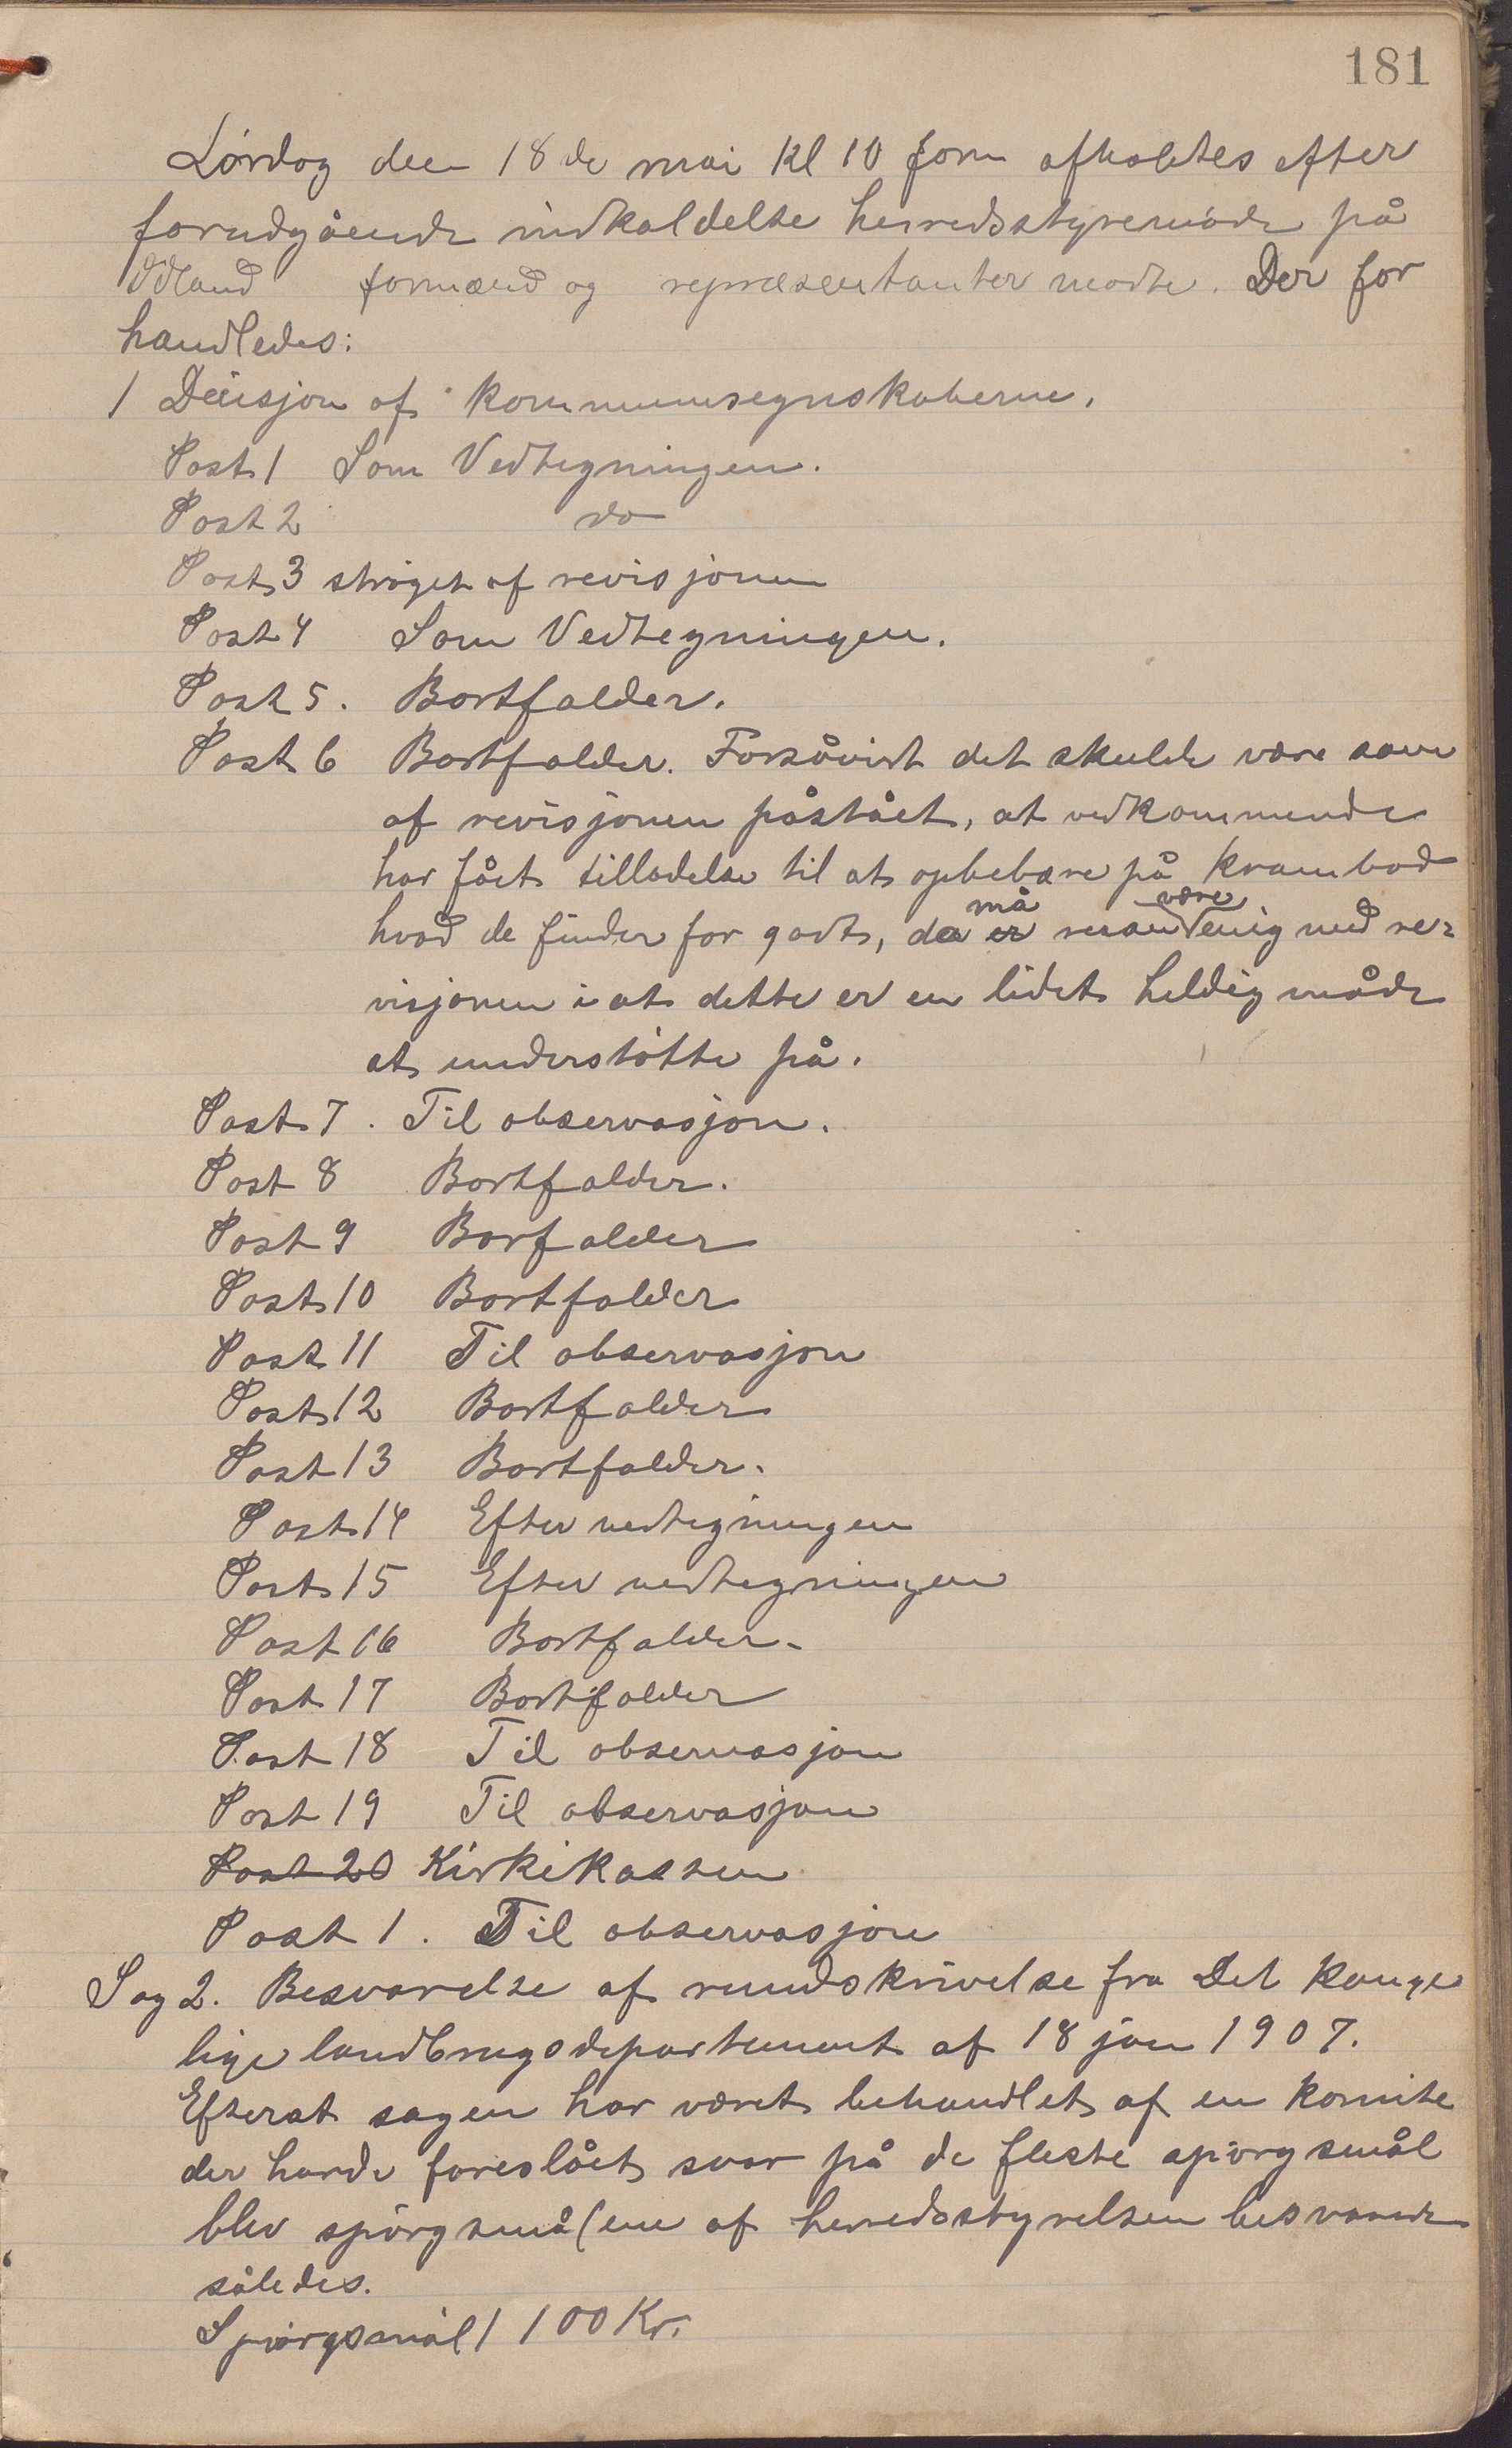 181
Lørdag den 18de mai kl 10 form afholdtes efter
forudgående indkaldelse herredsstyremøde på
Ødland formænd og repræsentanter mødte. Der for
handledes:
1 Deisjon af kommuneregnskaberne.
Post 1 Som Vedtegningen.
Post 2 do
Post 3 strøget af revisjonen
Post 4 Som Vedtegningen.
Post 5. Bortfalder.
Post 6 Bortfalder. Forsåvidt det skulde være som
af revisjonen påstået, at vedkommende
har fået tilladelse til at opbebære på krambod
må være
hvad de finder for godt, da er man enig med re=
visjonen i at dette er en lidet heldig måde
at understøtte på.
Post 7. Til observasjon.
Post 8 Bortfalder.
Post 9 Borfalder
Post 10 Bortfalder
Post 11 Til observasjon
Post 12 Bortfalder
Post 13 Bortfalder.
Post 14 Efter vedtegningen
Post 15 Efter vedtegningen
Post 16 Bortfalder.
Post 17 Bortfalder
Post 18 Til observasjon
Post 19 Til observasjon
Post 20 Kirkekassen
Post 1. Til observasjon
Sag 2. Besvarelse af rundskrivelse fra Det konge
lige landbrugsdepartement af 18 jan 1907.
Efterat sagen har været behandlet af en komite
der havde foreslået svar på de fleste spørgsmål
blev spørgsmålene af herredsstyrelsen besvarede
således.
Spørgsmål 1 100 Kr.